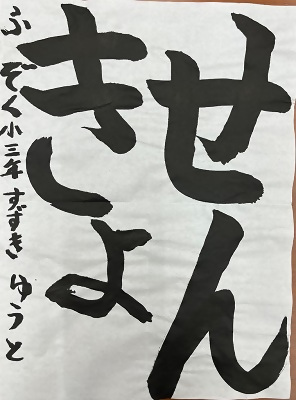 せん
きょ
ふぞく小三年すずきゆうと